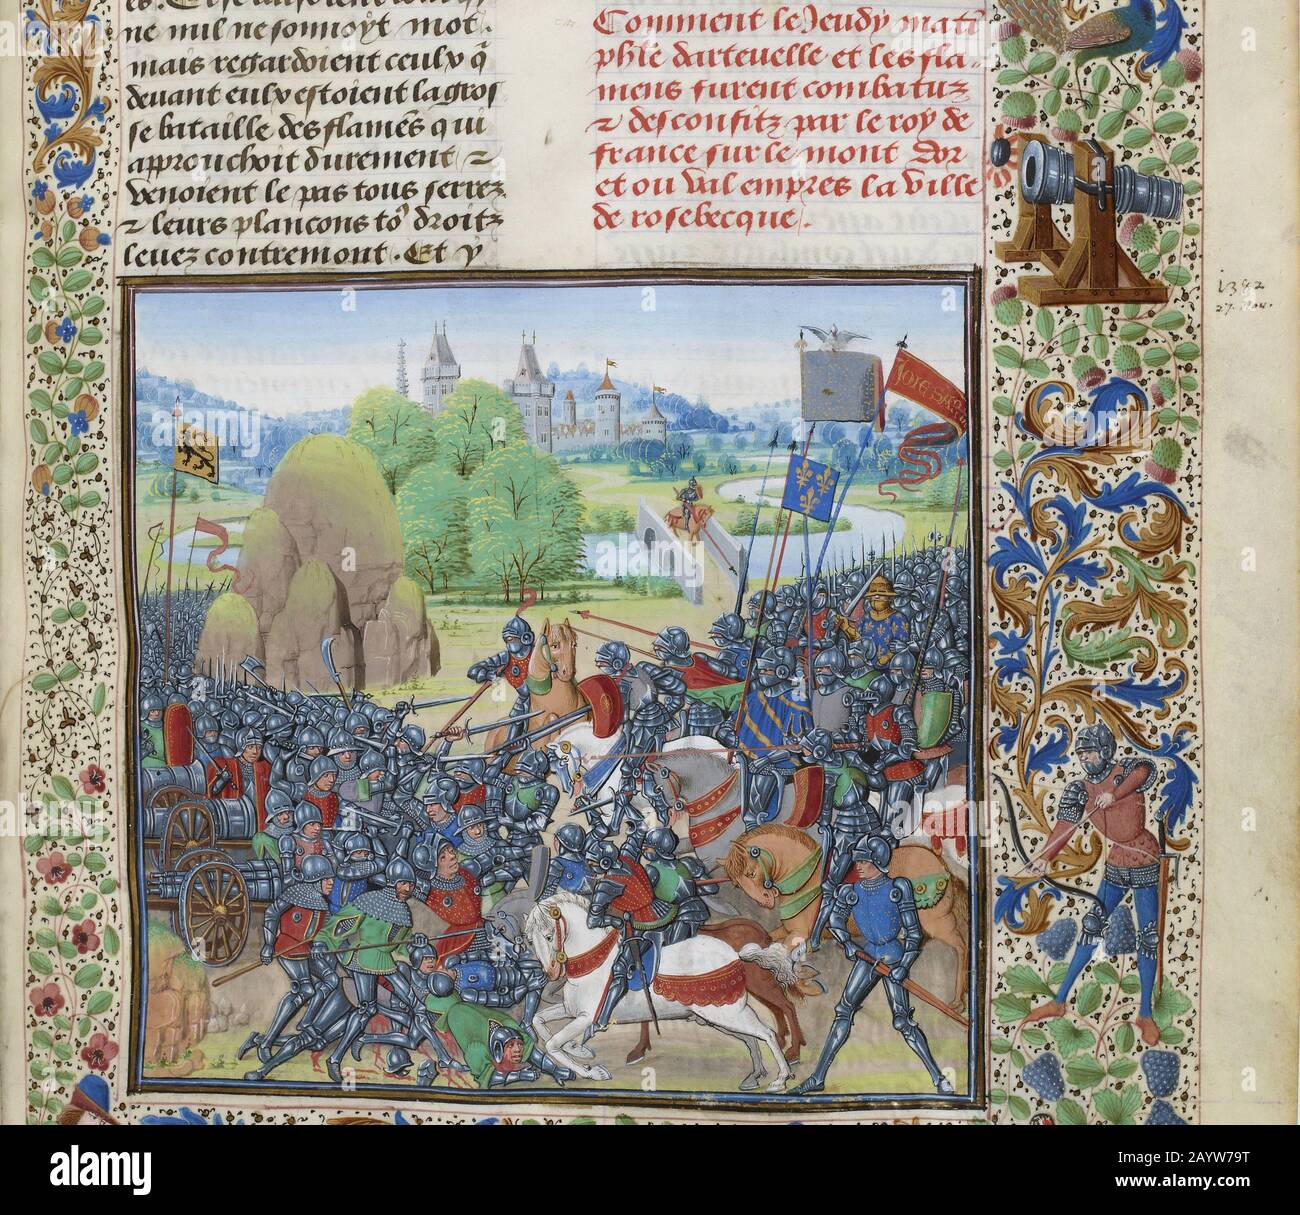 ne mil ne sonnoyt mot.
mais regardoient ceulx q̄
devant eulx estoient la gros
se bataille des flamēs qui
approuchoit durement ⁊
venoient le pas tous serrez
⁊ leurs plancons to9 droitz
levez contremont. Et y
Comment le Jeudy matī
phlē dartevelle et les fla-
mens furent combatuz
⁊ desconfitz par le roy de
france sur le mont dor
et ou val empres la ville
de rosebecque.
1382
27. Nov.
a
alamy
Image ID: 2AYW79T
www.alamy.com